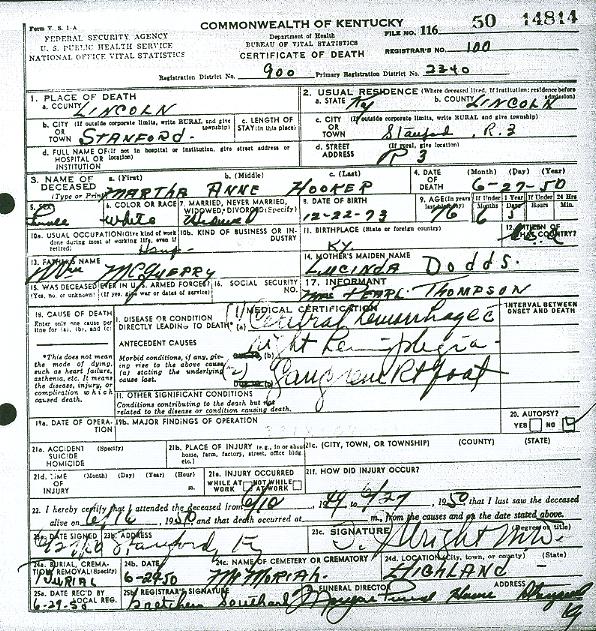 Form V. S. 1-A
COMMONWEALTH OF KENTUCKY
FEDERAL SECURITY AGENCY
U. S. PUBLIC HEALTH SERVICE
NATIONAL OFFICE VITAL STATISTICS
Department of Health
BUREAU OF VITAL STATISTICS
CERTIFICATE OF DEATH
FILE NO. 116 50 14814
REGISTRAR'S NO. 100
Registration District No. 900 Primary Registration District No. 2340
1. PLACE OF DEATH
a. COUNTY LINCOLN
2. USUAL RESIDENCE (Where deceased lived. If institution: residence before admission)
a. STATE Ky b. COUNTY LINCOLN
b. CITY (If outside corporate limits, write RURAL and give township)
OR TOWN STANFORD.
c. LENGTH OF STAY (in this place)
c. CITY (If outside corporate limits, write RURAL and give township)
OR TOWN Stanford, R.3
d. FULL NAME OF (If not in hospital or institution, give street address or location)
HOSPITAL OR INSTITUTION
d. STREET ADDRESS (If rural, give location)
R 3
3. NAME OF DECEASED (Type or Print)
a. (First) b. (Middle) c. (Last)
MARTHA ANNE HOOKER
4. DATE OF DEATH (Month) (Day) (Year)
6-27-50
5. SEX
6. COLOR OR RACE White
7. MARRIED, NEVER MARRIED, WIDOWED, DIVORCED (Specify) Widowed
8. DATE OF BIRTH 12-22-73
9. AGE (In years last birthday) 76
If Under 1 Year Months 6 Days 5
If Under 24 Hrs Hours Min.
10a. USUAL OCCUPATION (Give kind of work done during most of working life, even if retired)
10b. KIND OF BUSINESS OR INDUSTRY
11. BIRTHPLACE (State or foreign country) KY.
12. CITIZEN OF WHAT COUNTRY?
13. FATHER'S NAME
Wm McGUFFRY
14. MOTHER'S MAIDEN NAME
LUCINDA Dodds.
15. WAS DECEASED EVER IN U.S. ARMED FORCES?
(Yes, no, or unknown) (If yes, give war or dates of service)
16. SOCIAL SECURITY NO.
17. INFORMANT
Mrs PEARL THOMPSON
18. CAUSE OF DEATH
Enter only one cause per line for (a), (b), and (c)
MEDICAL CERTIFICATION
INTERVAL BETWEEN ONSET AND DEATH
I. DISEASE OR CONDITION DIRECTLY LEADING TO DEATH* (a) Cerebral hemorrhage
ANTECEDENT CAUSES
right hemiplegia
*This does not mean the mode of dying, such as heart failure, asthenia, etc. It means the disease, injury, or complication which caused death.
Morbid conditions, if any, giving rise to the above cause (a) stating the underlying cause last.
(2) Gangrene Rt foot
II. OTHER SIGNIFICANT CONDITIONS
Conditions contributing to the death but not related to the disease or condition causing death.
19a. DATE OF OPERATION
19b. MAJOR FINDINGS OF OPERATION
20. AUTOPSY?
YES NO
21a. ACCIDENT SUICIDE HOMICIDE (Specify)
21b. PLACE OF INJURY (e.g., in or about home, farm, factory, street, office bldg.)
21c. (CITY, TOWN, OR TOWNSHIP) (COUNTY) (STATE)
21d. TIME OF INJURY (Month) (Day) (Year) (Hour) m.
21e. INJURY OCCURRED
WHILE AT WORK NOT WHILE AT WORK
21f. HOW DID INJURY OCCUR?
22. I hereby certify that I attended the deceased from 6/10, 1949 6/27, 1950 that I last saw the deceased
alive on 6/16, 1950 and that death occurred at m., from the causes and on the date stated above.
23a. DATE SIGNED
23b. ADDRESS Stanford, Ky
23c. SIGNATURE (Degree or title)
Wright M.D.
24a. BURIAL, CREMATION, REMOVAL (Specify)
BURIAL
24b. DATE
6-29-50
24c. NAME OF CEMETERY OR CREMATORY
Mt MORIAH.
24d. LOCATION (City, town, or county) (State)
HIGHLAND
25a. DATE REC'D BY LOCAL REG.
6-29-50
25b. REGISTRAR'S SIGNATURE
Gretchen Southard
FUNERAL DIRECTOR ADDRESS
Home
Ky